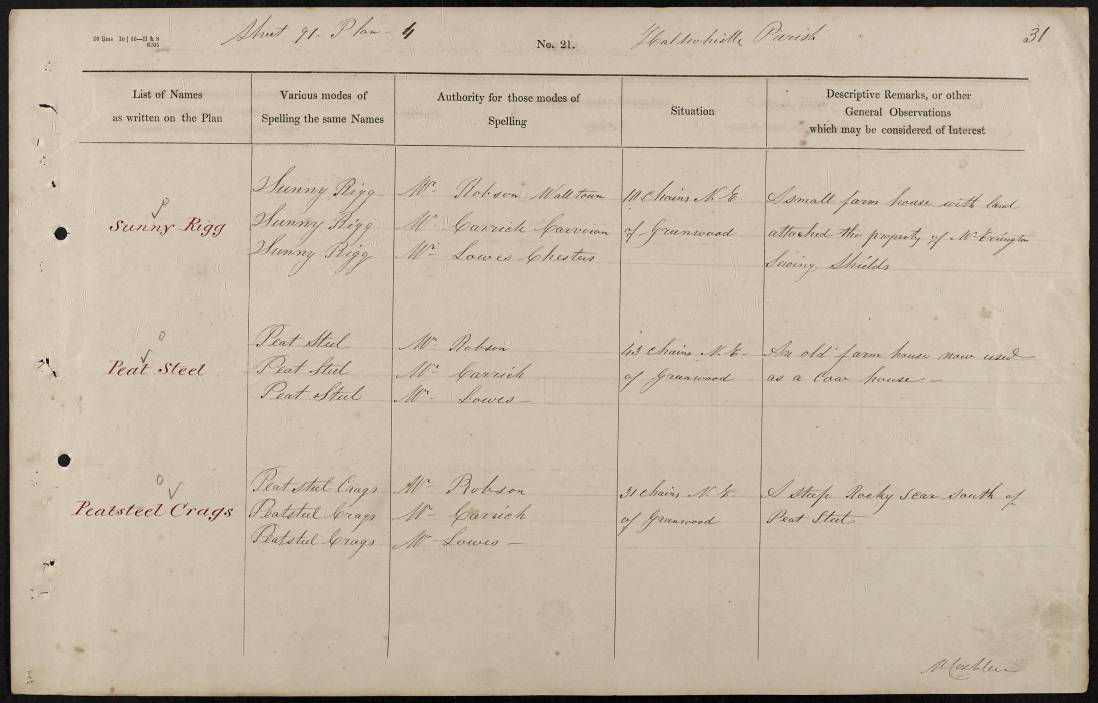 Sheet 91. Plan 4
No. 21.
Haltwhistle Parish
31
List of Names
as written on the Plan
Various modes of
Spelling the same Names
Authority for those modes of
Spelling
Situation
Descriptive Remarks, or other
General Observations
which may be considered of Interest
Sunny Rigg
Sunny Rigg
Sunny Rigg
Sunny Rigg
Mr. Robson Walltown
Mr. Carrick Carvoran
Mr. Lowes Chesters
10 chains N.E.
of Greenwood
A small farm house with land
attached the property of Mr. Errington
Sewing Shields
Peat Steel
Peat Steel
Peat Steel
Peat Steel
Mr. Robson
Mr. Carrick
Mr. Lowes
43 chains N.E.
of Greenwood
An old farm house now used
as a Cow house
Peatsteel Crags
Peat steel Crags
Peatsteel Crags
Peatsteel Crags
Mr. Robson
Mr. Carrick
Mr. Lowes
31 chains N.E.
of Greenwood
A steep Rocky scar south of
Peat Steel